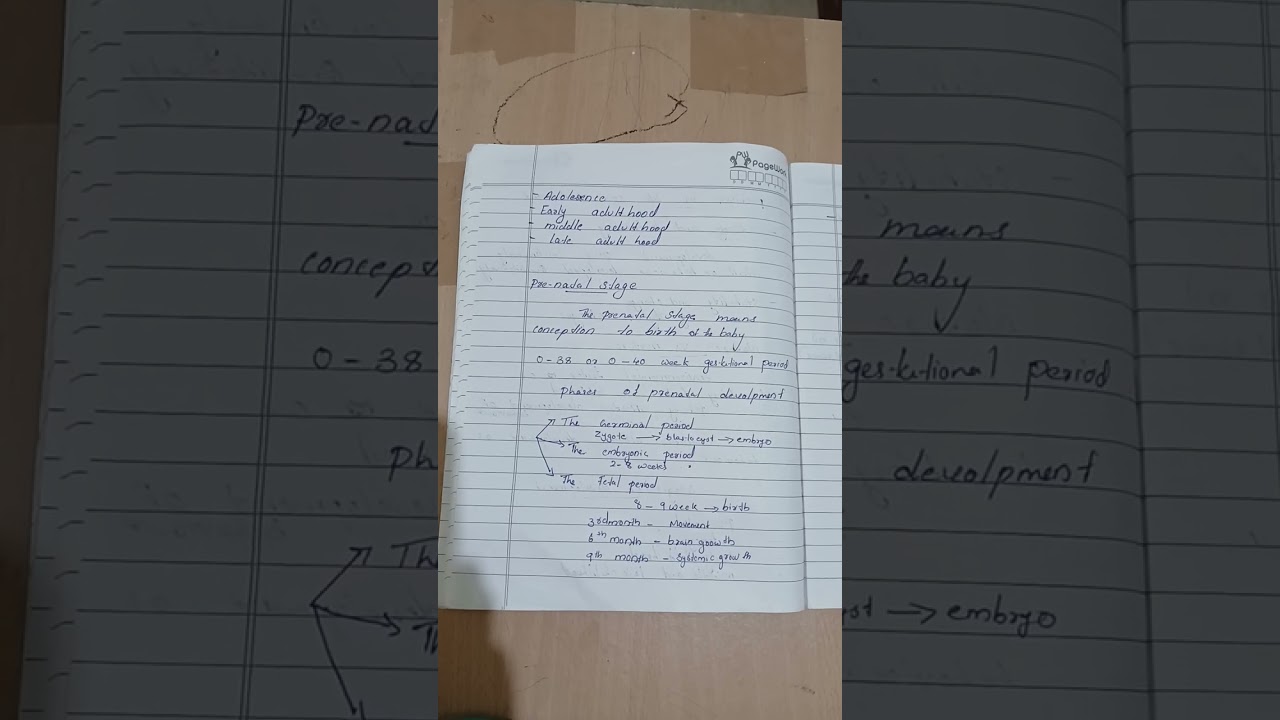 PageWan
- Adolesence
- Early adult hood
- middle adult hood
- Late adult hood
Pre-nadal stage
The prenatal stage means
conception to birth of the baby
0-38 or 0-40 week gestational period
phases of prenatal devolpment
The Germinal period
Zygote → blastocyst → embryo
The embryonic period
2-8 weeks
The Fetal period
8-9 week → birth
3rd month - Movement
6th month - brain growth
9th month - Systemic growth